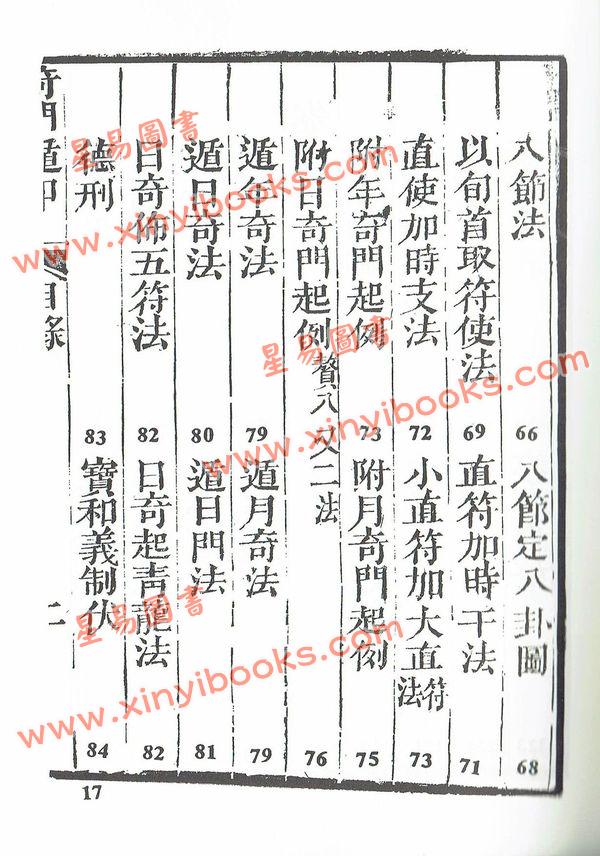 八節法 66 八節定八卦圖 68
以旬首取符使法 69 直符加時干法 71
直使加時支法 72 小直符加大直符法 73
附年奇門起例 73 附月奇門起例 75
附日奇門起例 贅八 又二法 76
遁年奇法 79 遁月奇法 79
遁日奇法 80 遁日門法 81
日奇佈五符法 82 日奇起青龍法 82
德刑 83 寶和義制伏 84
奇門遁甲 目錄 二
17
星易圖書
www.xinyibooks.com
星易圖書
www.xinyibooks.com
星易圖書
www.xinyibooks.com